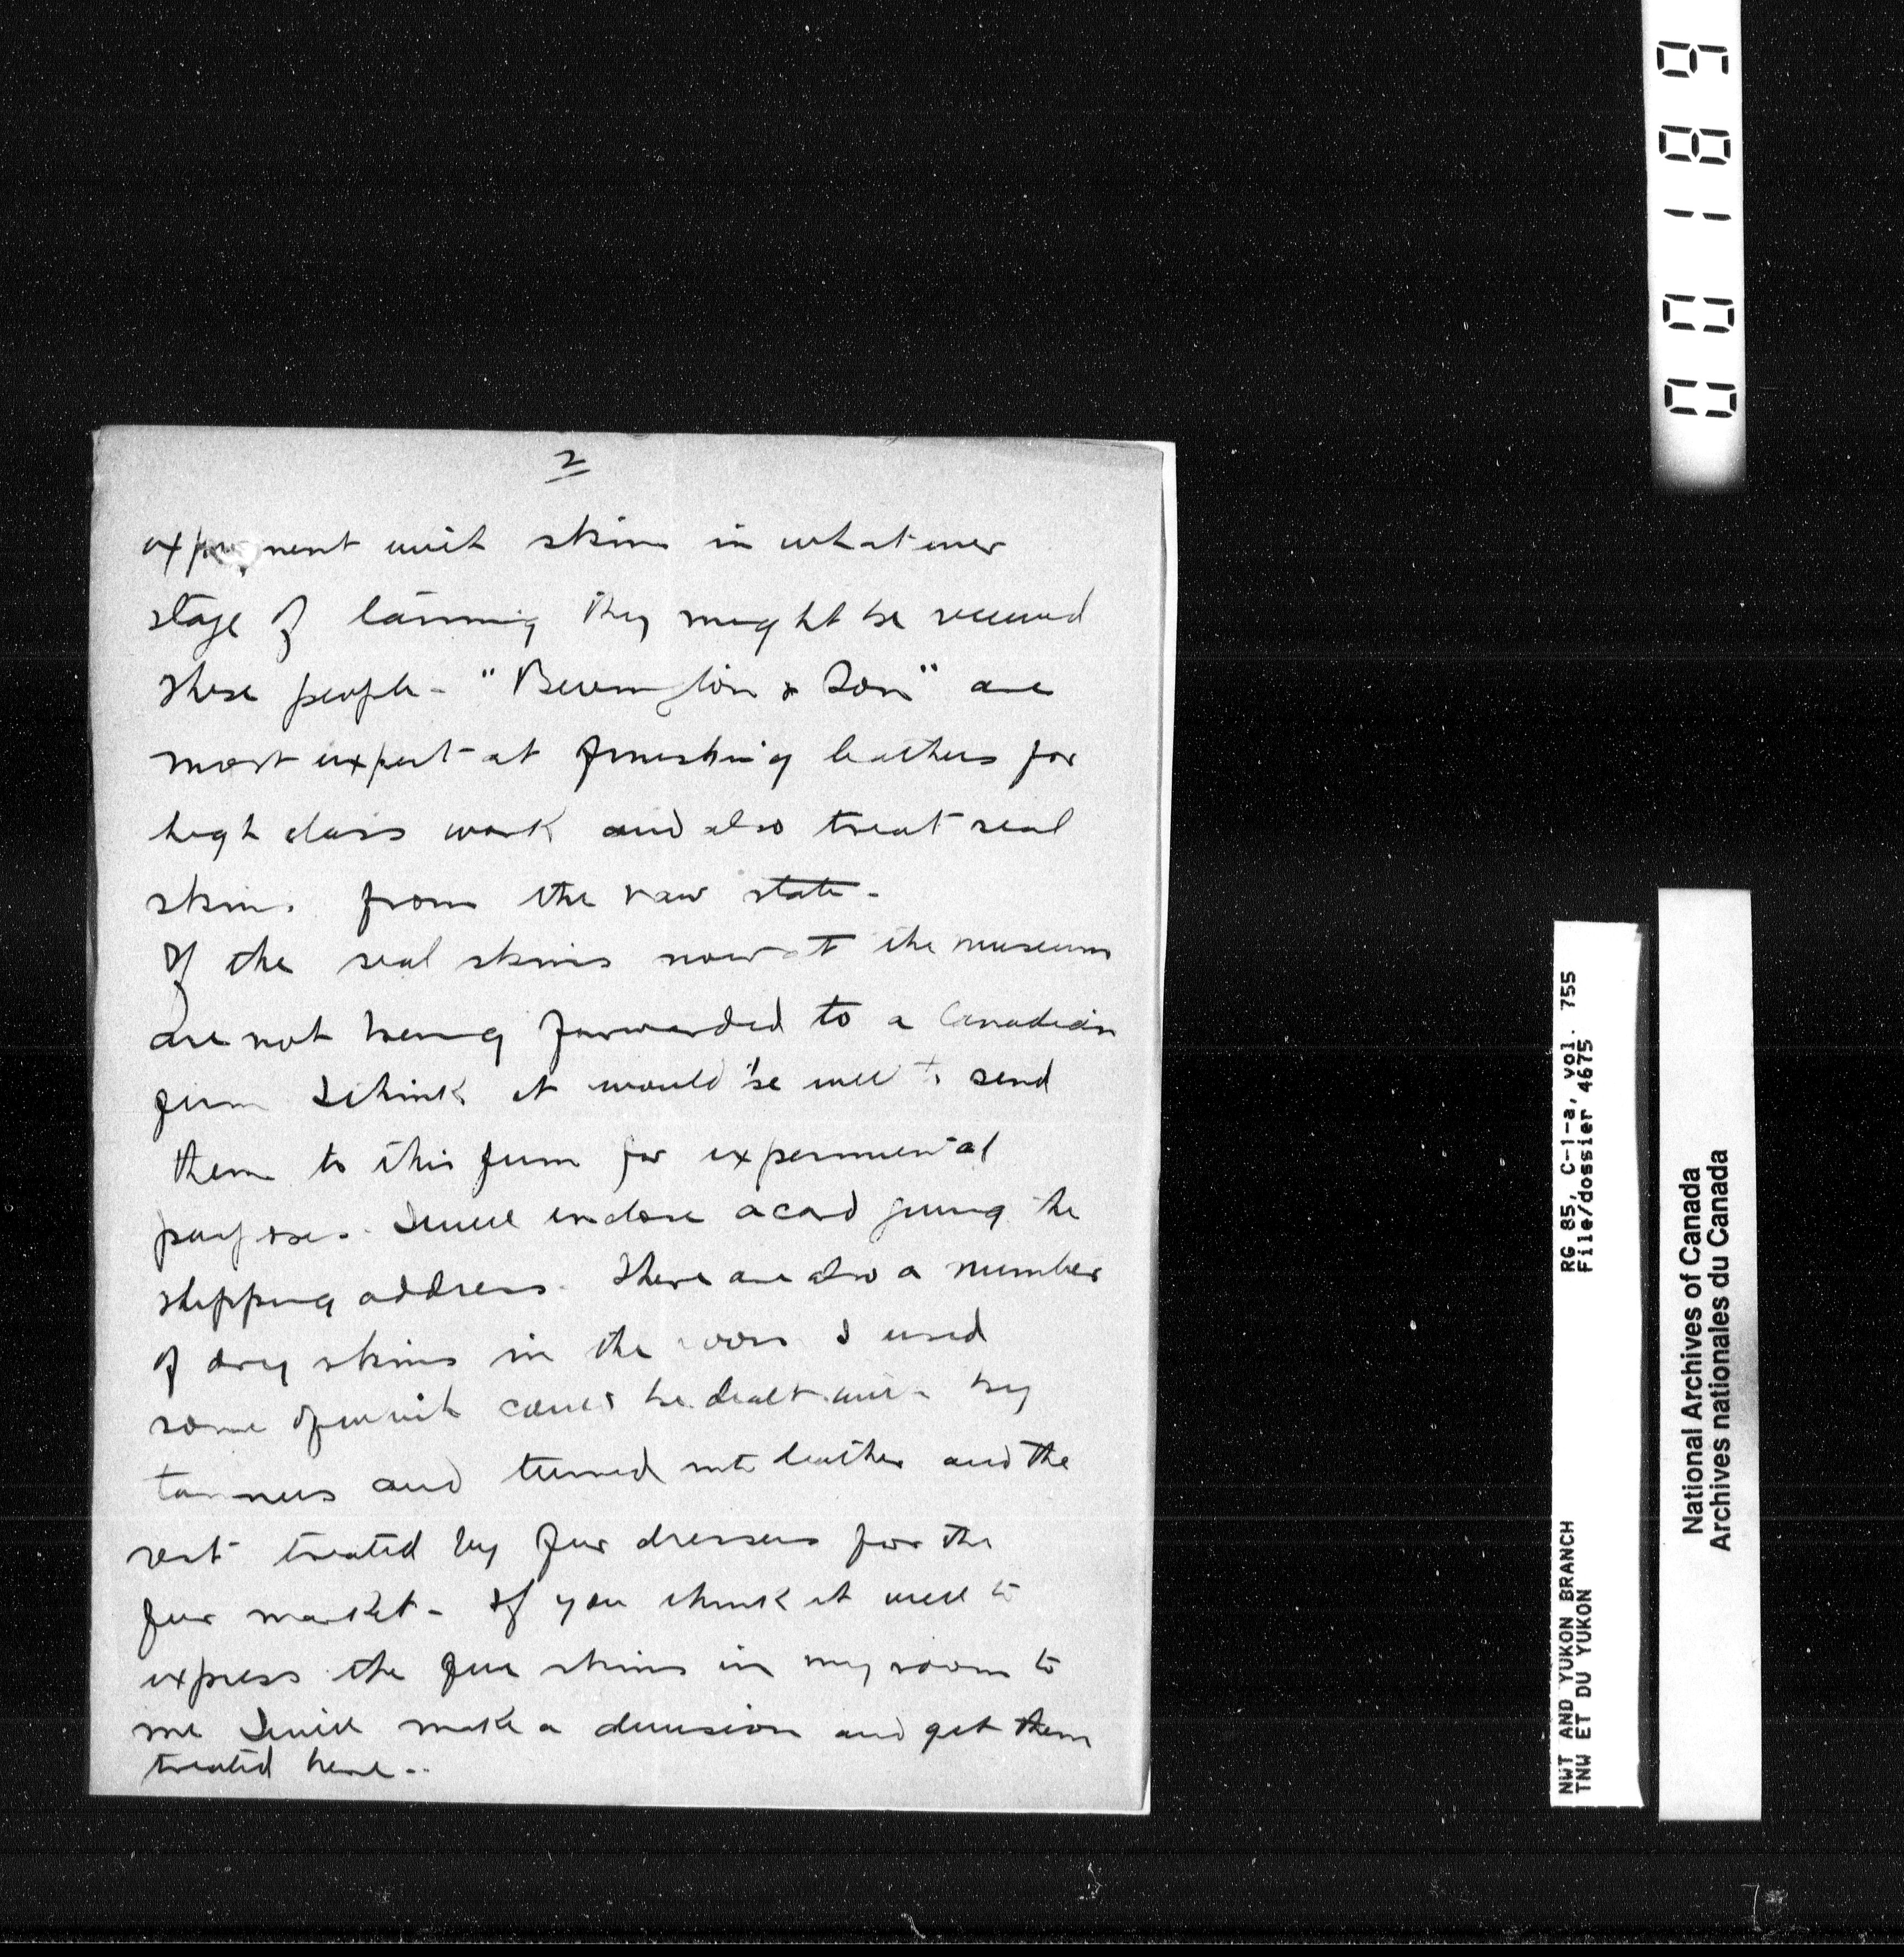 2
experiment with skins in whatever
stage of tanning they might be received
These people - "Bevington & Son" are
most expert at finishing leathers for
high class work and also treat seal
skins from the raw state -
If the seal skins now at the museum
are not being forwarded to a Canadian
firm I think it would be well to send
them to this firm for experimental
purposes. I will enclose a card giving the
shipping address. There are also a number
of dry skins in the room I used
some of which could be dealt with by
tanners and turned into leather and the
rest treated by fur dressers for the
fur market - If you think it well to
express the fur skins in my room to
me I will make a decision and get them
treated here -
00189
RG 85, C-1-a, vol. 755
File/dossier 4675
NWT AND YUKON BRANCH
TNW ET DU YUKON
National Archives of Canada
Archives nationales du Canada